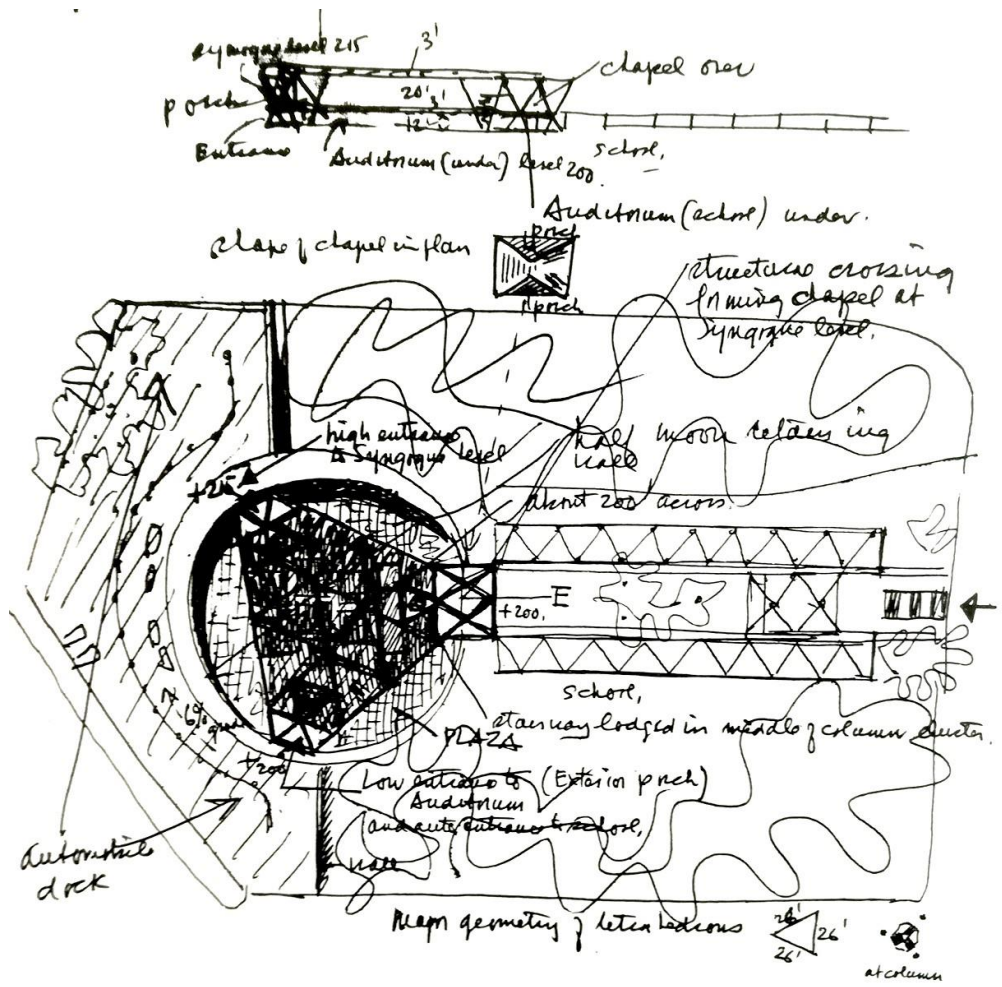 synagogue level 215
3'
chapel over
20'
3'
porch
12'
Entrance
Auditorium (under) level 200
school,
Auditorium (school) under.
shape of chapel in plan
porch
porch
structure crossing
forming chapel at
Synagogue level.
high entrance
Synagogue level
+215
half moon retaining
wall
about 200' across.
E
+200.
school,
stairway lodged in middle of column cluster.
PLAZA
-6%
+200
Low entrance to (Exterior porch)
Auditorium
and auto entrance to school,
wall
automobile
dock
Major geometry of tetrahedrons
26'
26'
26'
at column